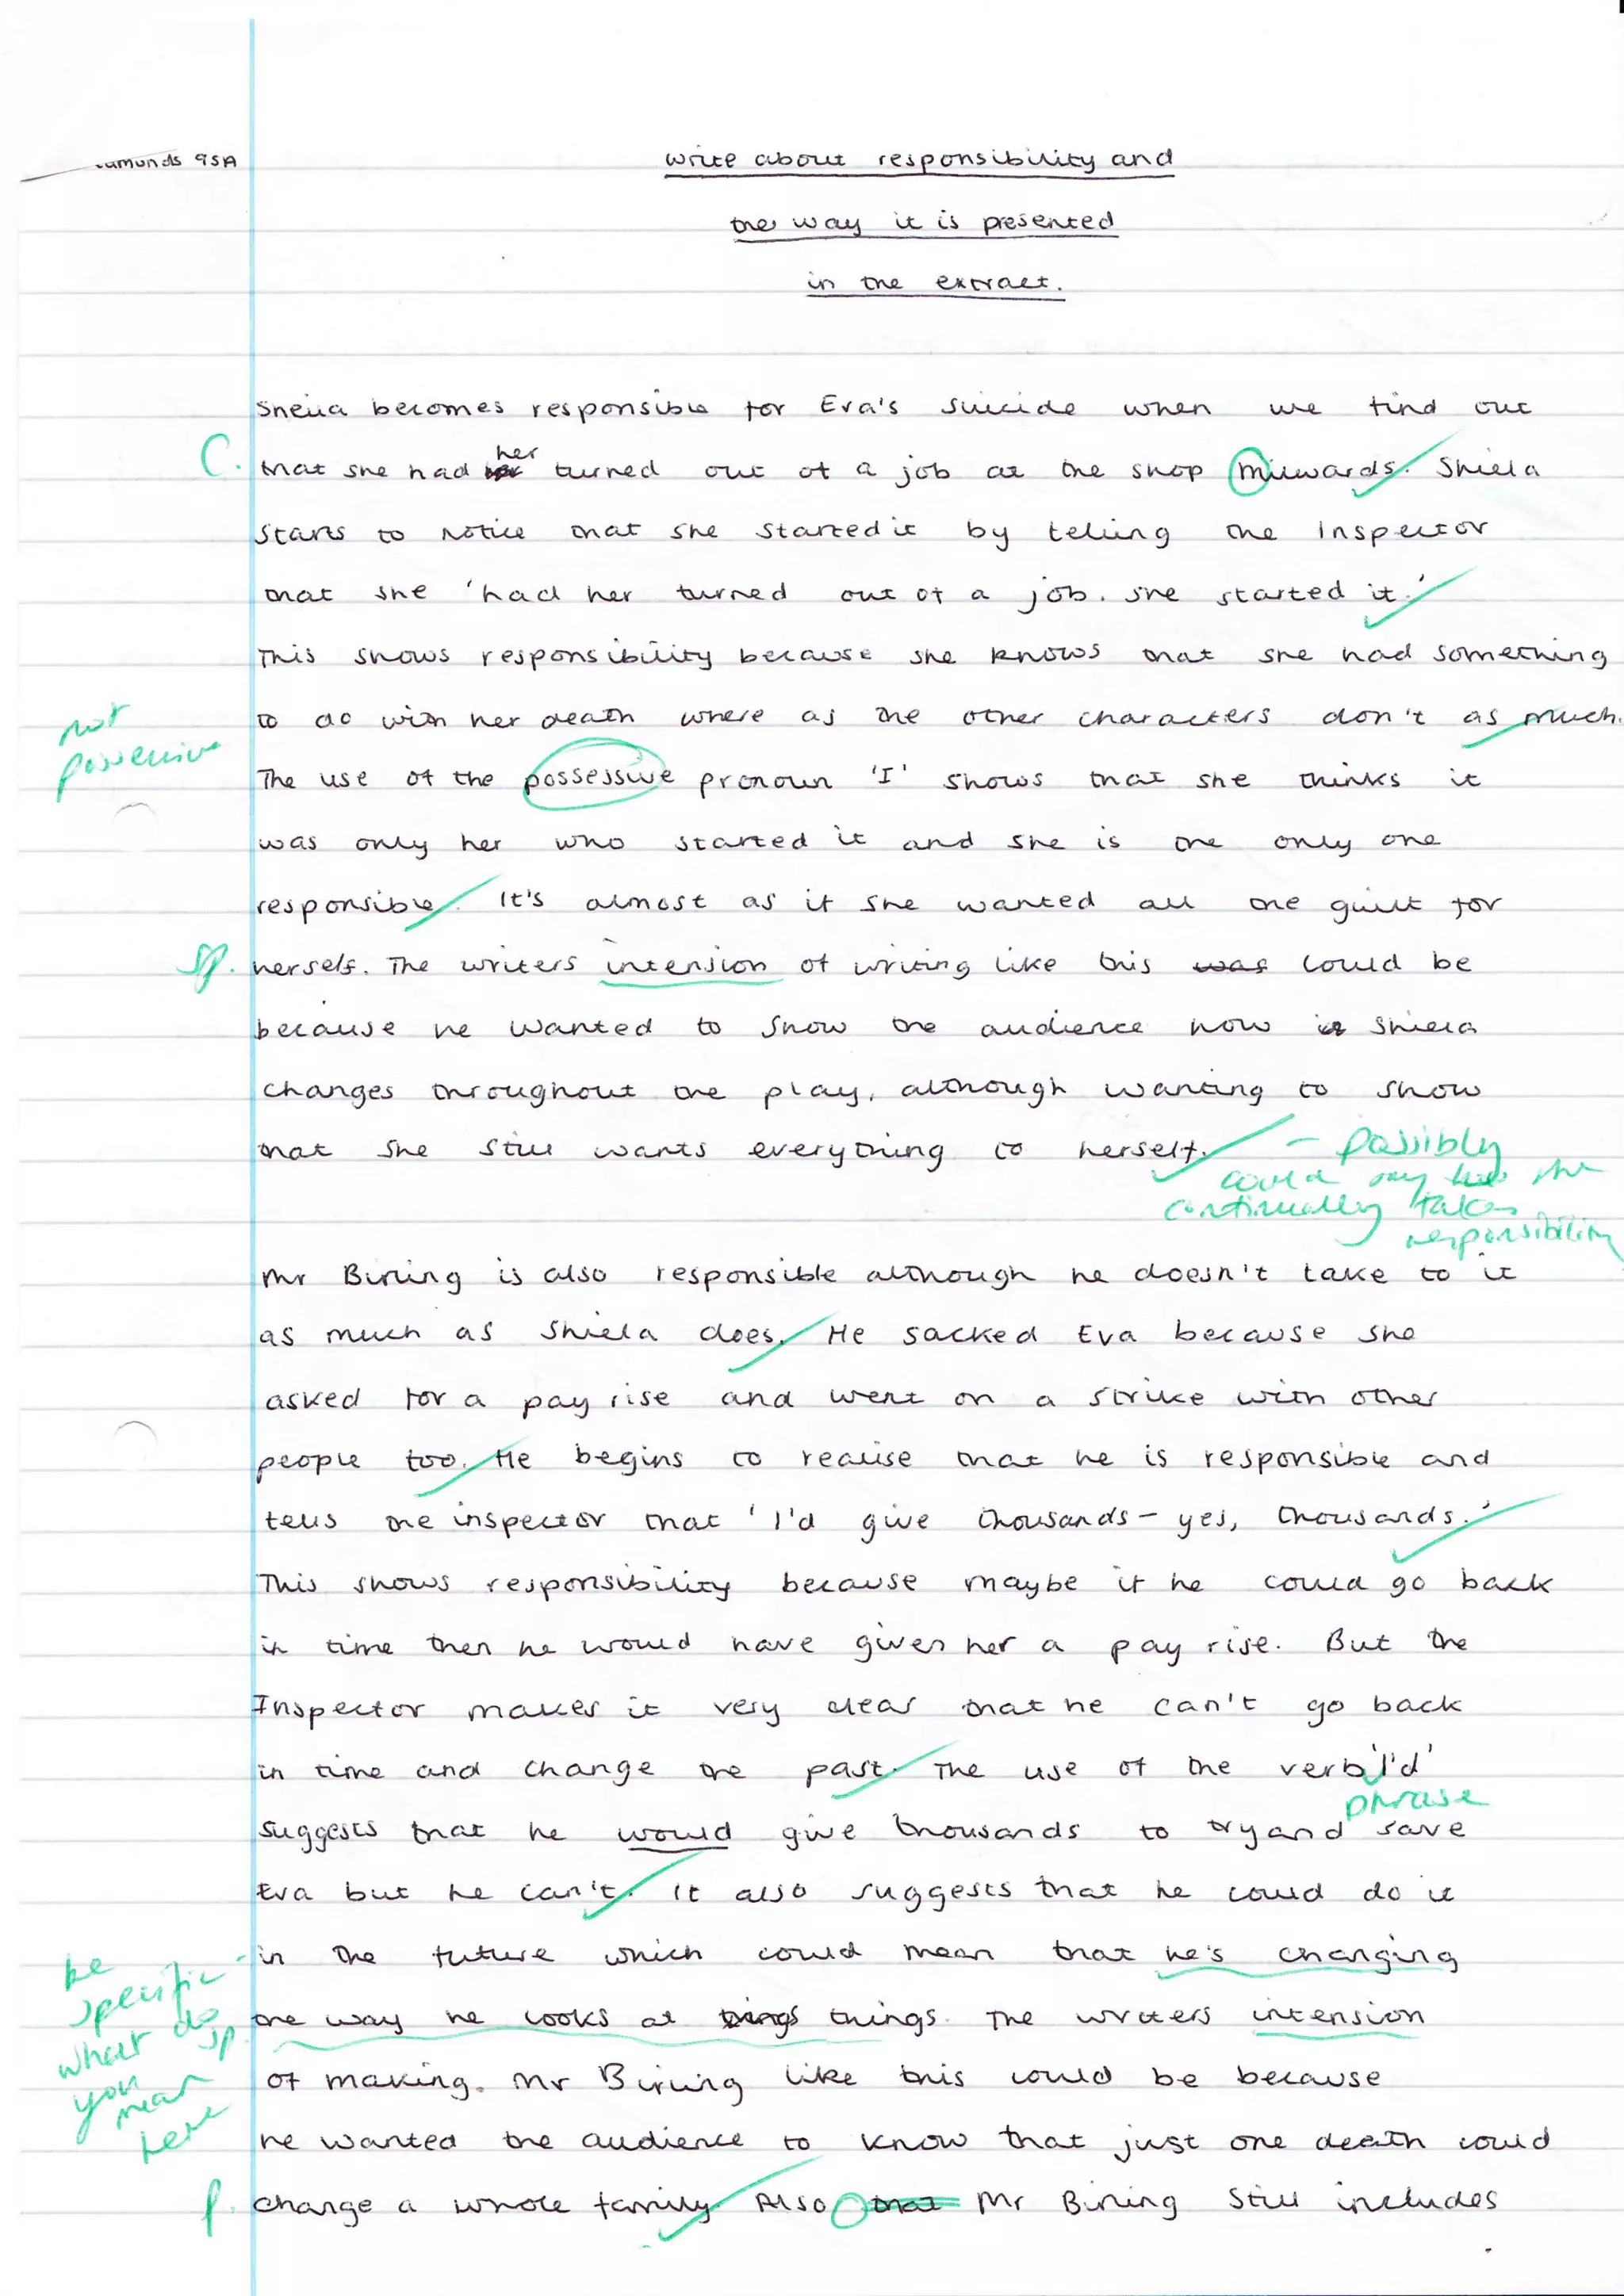 amunds 9SA
write about responsibility and
the way it is presented
in the extract.
Sheila becomes responsible for Eva's suicide when we find out
C. that she had her turned out of a job at the shop milwards. Shiela
starts to notice that she started it by telling the Inspector
that she 'had her turned out of a job. She started it.'
This shows responsibility because she knows that she had something
to do with her death where as the other characters don't as much.
not
possessive
The use of the possessive pronoun 'I' shows that she thinks it
was only her who started it and she is the only one
responsible. It's almost as if she wanted all the guilt for
sp. herself. The writers intension of writing like this was could be
because he wanted to show the audience how is Shiela
changes throughout the play, although wanting to show
that she still wants everything to herself. - possibly
could say how she
continually takes
responsibility
Mr Birling is also responsible although he doesn't take to it
as much as Shiela does. He sacked Eva because she
asked for a pay rise and went on a strike with other
people too. He begins to realise that he is responsible and
tells the inspector that 'I'd give thousands - yes, thousands.'
This shows responsibility because maybe if he could go back
in time then he would have given her a pay rise. But the
Inspector makes it very clear that he can't go back
in time and change the past. The use of the verb 'I'd'
phrase
suggests that he would give thousands to try and save
Eva but he can't. It also suggests that he could do it
in the future which could mean that he's changing
the way he looks at things things. The writers intension
be
specific -
what do
you
mean
here
sp
of making. Mr Birling like this could be because
he wanted the audience to know that just one death could
p. change a whole family. Also that Mr Birling still includes